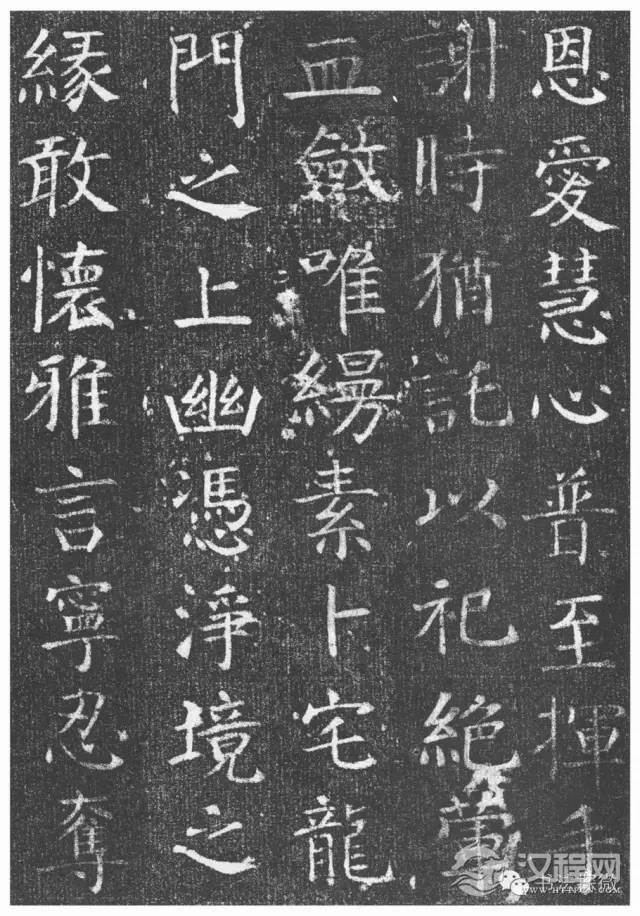 恩愛慧心普至揮手
謝時猶託以祀絕葷
血斂唯縵素卜宅龍
門之上幽憑淨境之
緣敢懷雅言寧忍奪
汉程网